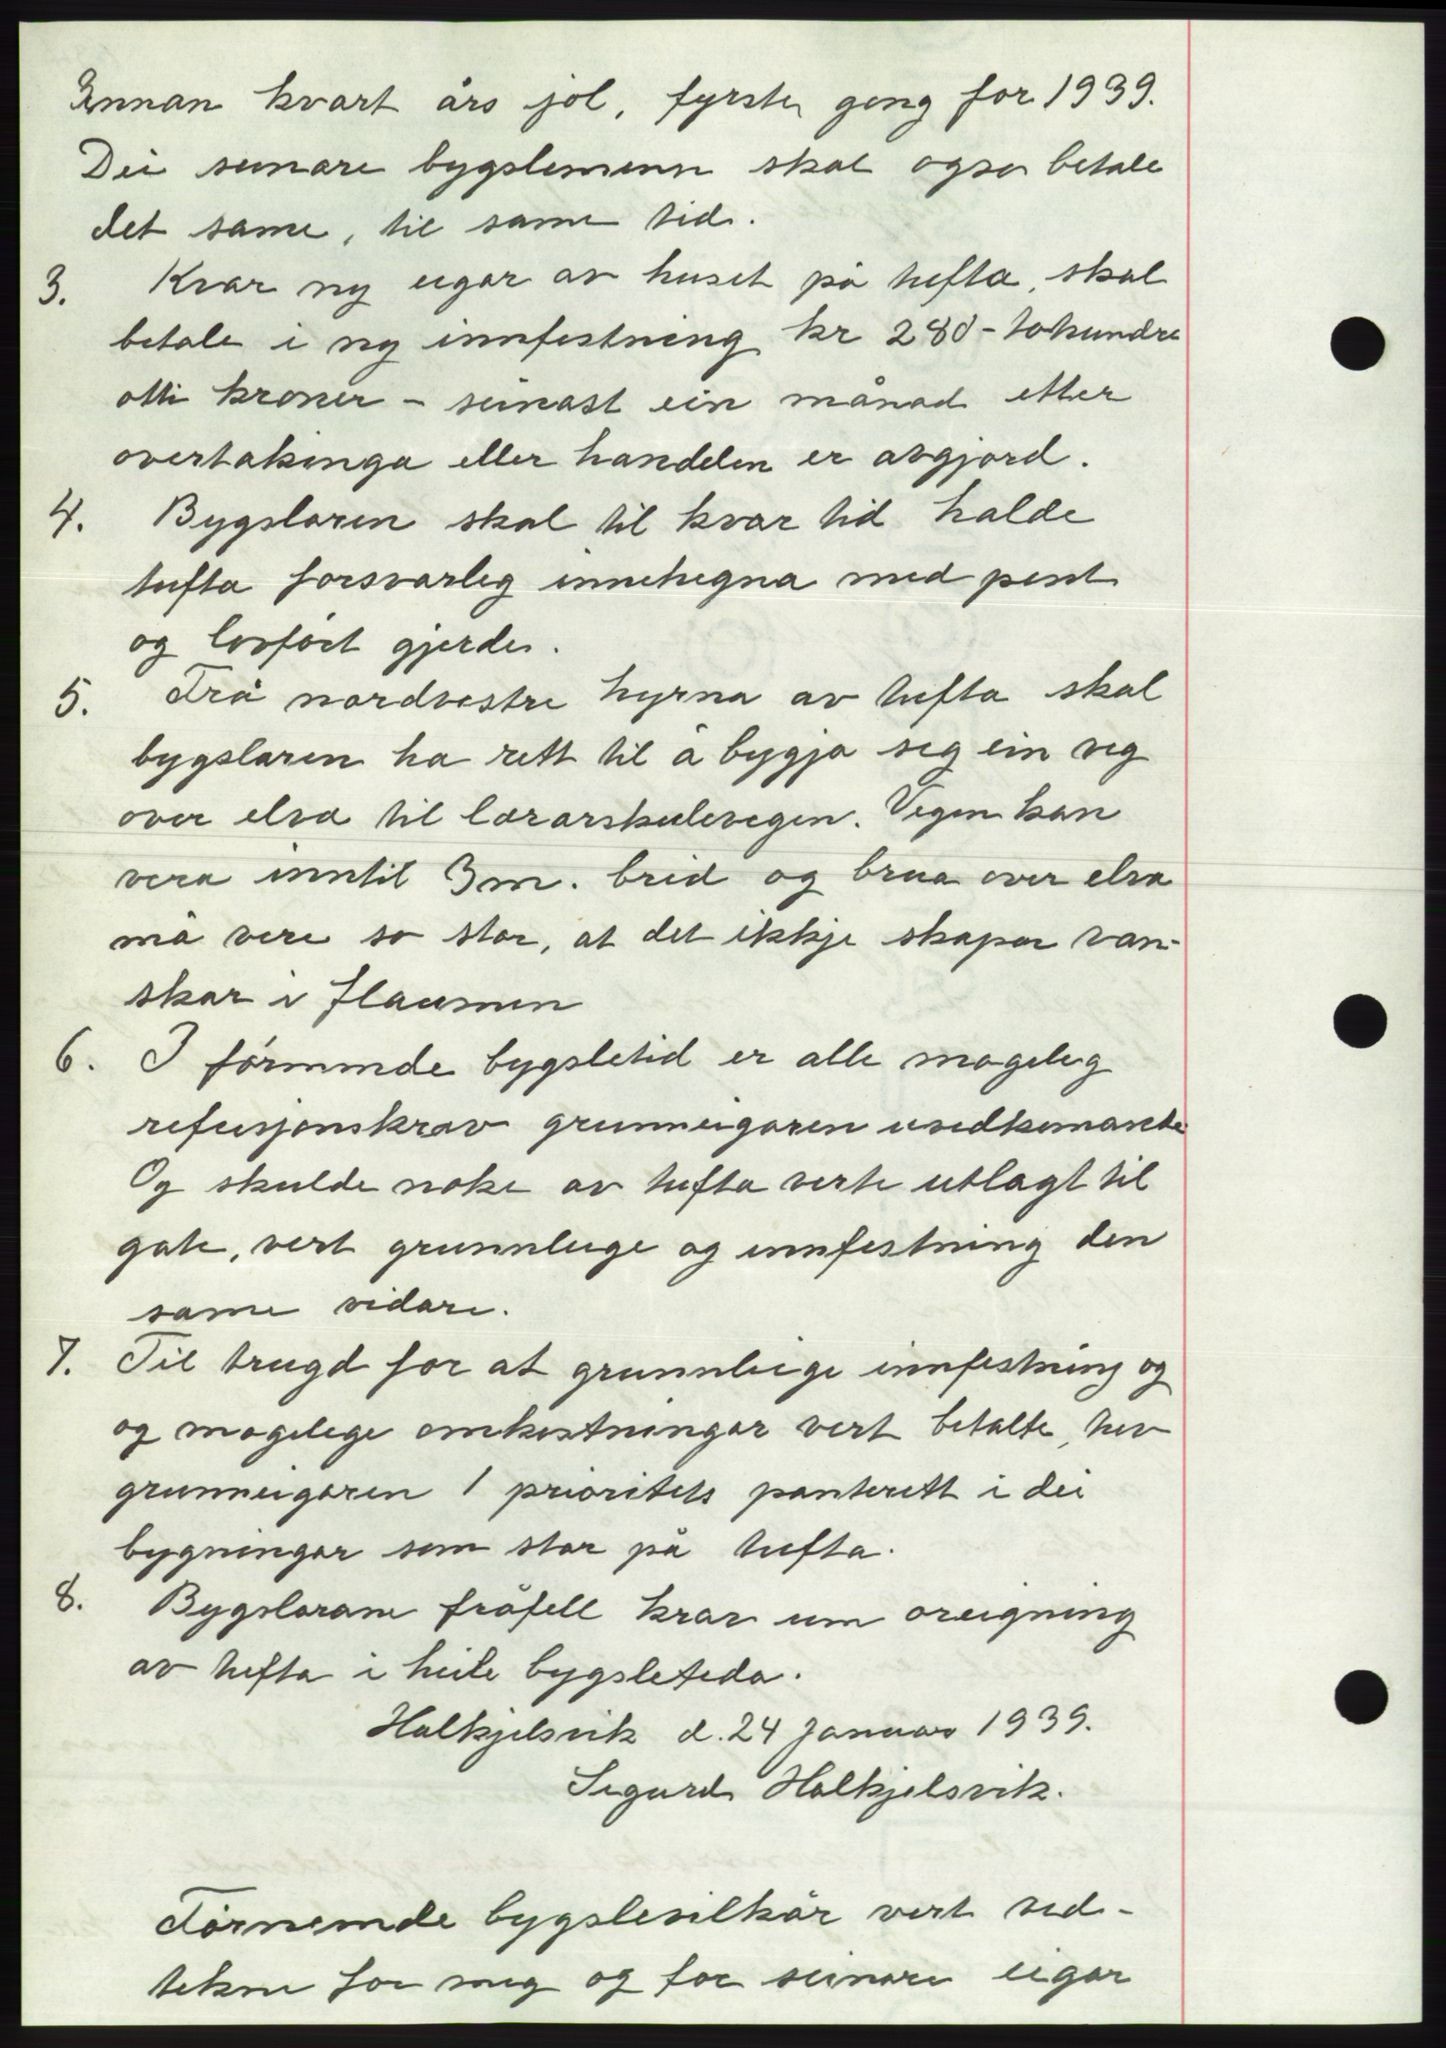 Innan kvart års jol, fyrste gong for 1939.
Dei seinare bygslemenn skal også betale
det same, til same tid.
3. Kvar ny eigar av huset på tufta, skal
betale i ny innfestning kr 280 - tohundre
otti kroner - seinast ein månad etter
overtakinga eller handelen er avgjord.
4. Bygslaren skal til kvar tid halde
tufta forsvarleg innehegna med pent
og lovført gjerde.
5. Frå nordvestre hyrna av tufta skal
bygslaren ha rett til å bygja seg ein veg
over elva til lærarskulevegen. Vegen kan
vera inntil 3 m. breid og brua over elva
må vere so stor, at det ikkje skapar van-
skar i flaumen
6. I förnemnde bygsletid er alle mogeleg
refusjonskrav grunneigaren uvedkomande
Og skulde noke av tufta verte utlagt til
gate, vert grunnleige og innfestning den
same vidare.
7. Til trugd for at grunnleige innfestning og
og mogelege omkostningar vert betalte, hev
grunneigaren 1 prioritets panterett i dei
bygningar som star på tufta.
8. Bygslarane fråfell krav um oreigning
av tufta i heile bygsletida.
Halkjelsvik d. 24 Januar 1939.
Sigurd Halkjelsvik.
Förnemde bygslevilkår vert ved-
tekne for meg og for seinare eigar